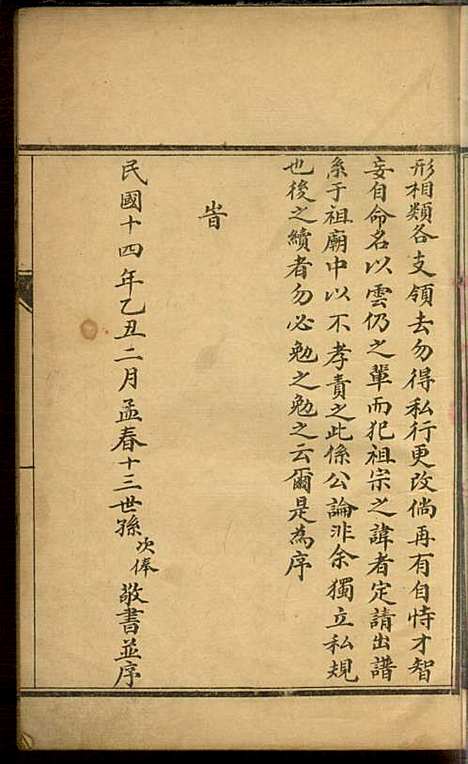 形相類各支領去勿得私行更改倘再有自恃才智
妄自命名以雲仍之輩而犯祖宗之諱者定請出譜
系于祖廟中以不孝責之此係公論非余獨立私規
也後之續者勿必勉之勉之云爾是為序
旹
民國十四年乙丑二月孟春十三世孫次俸敬書並序